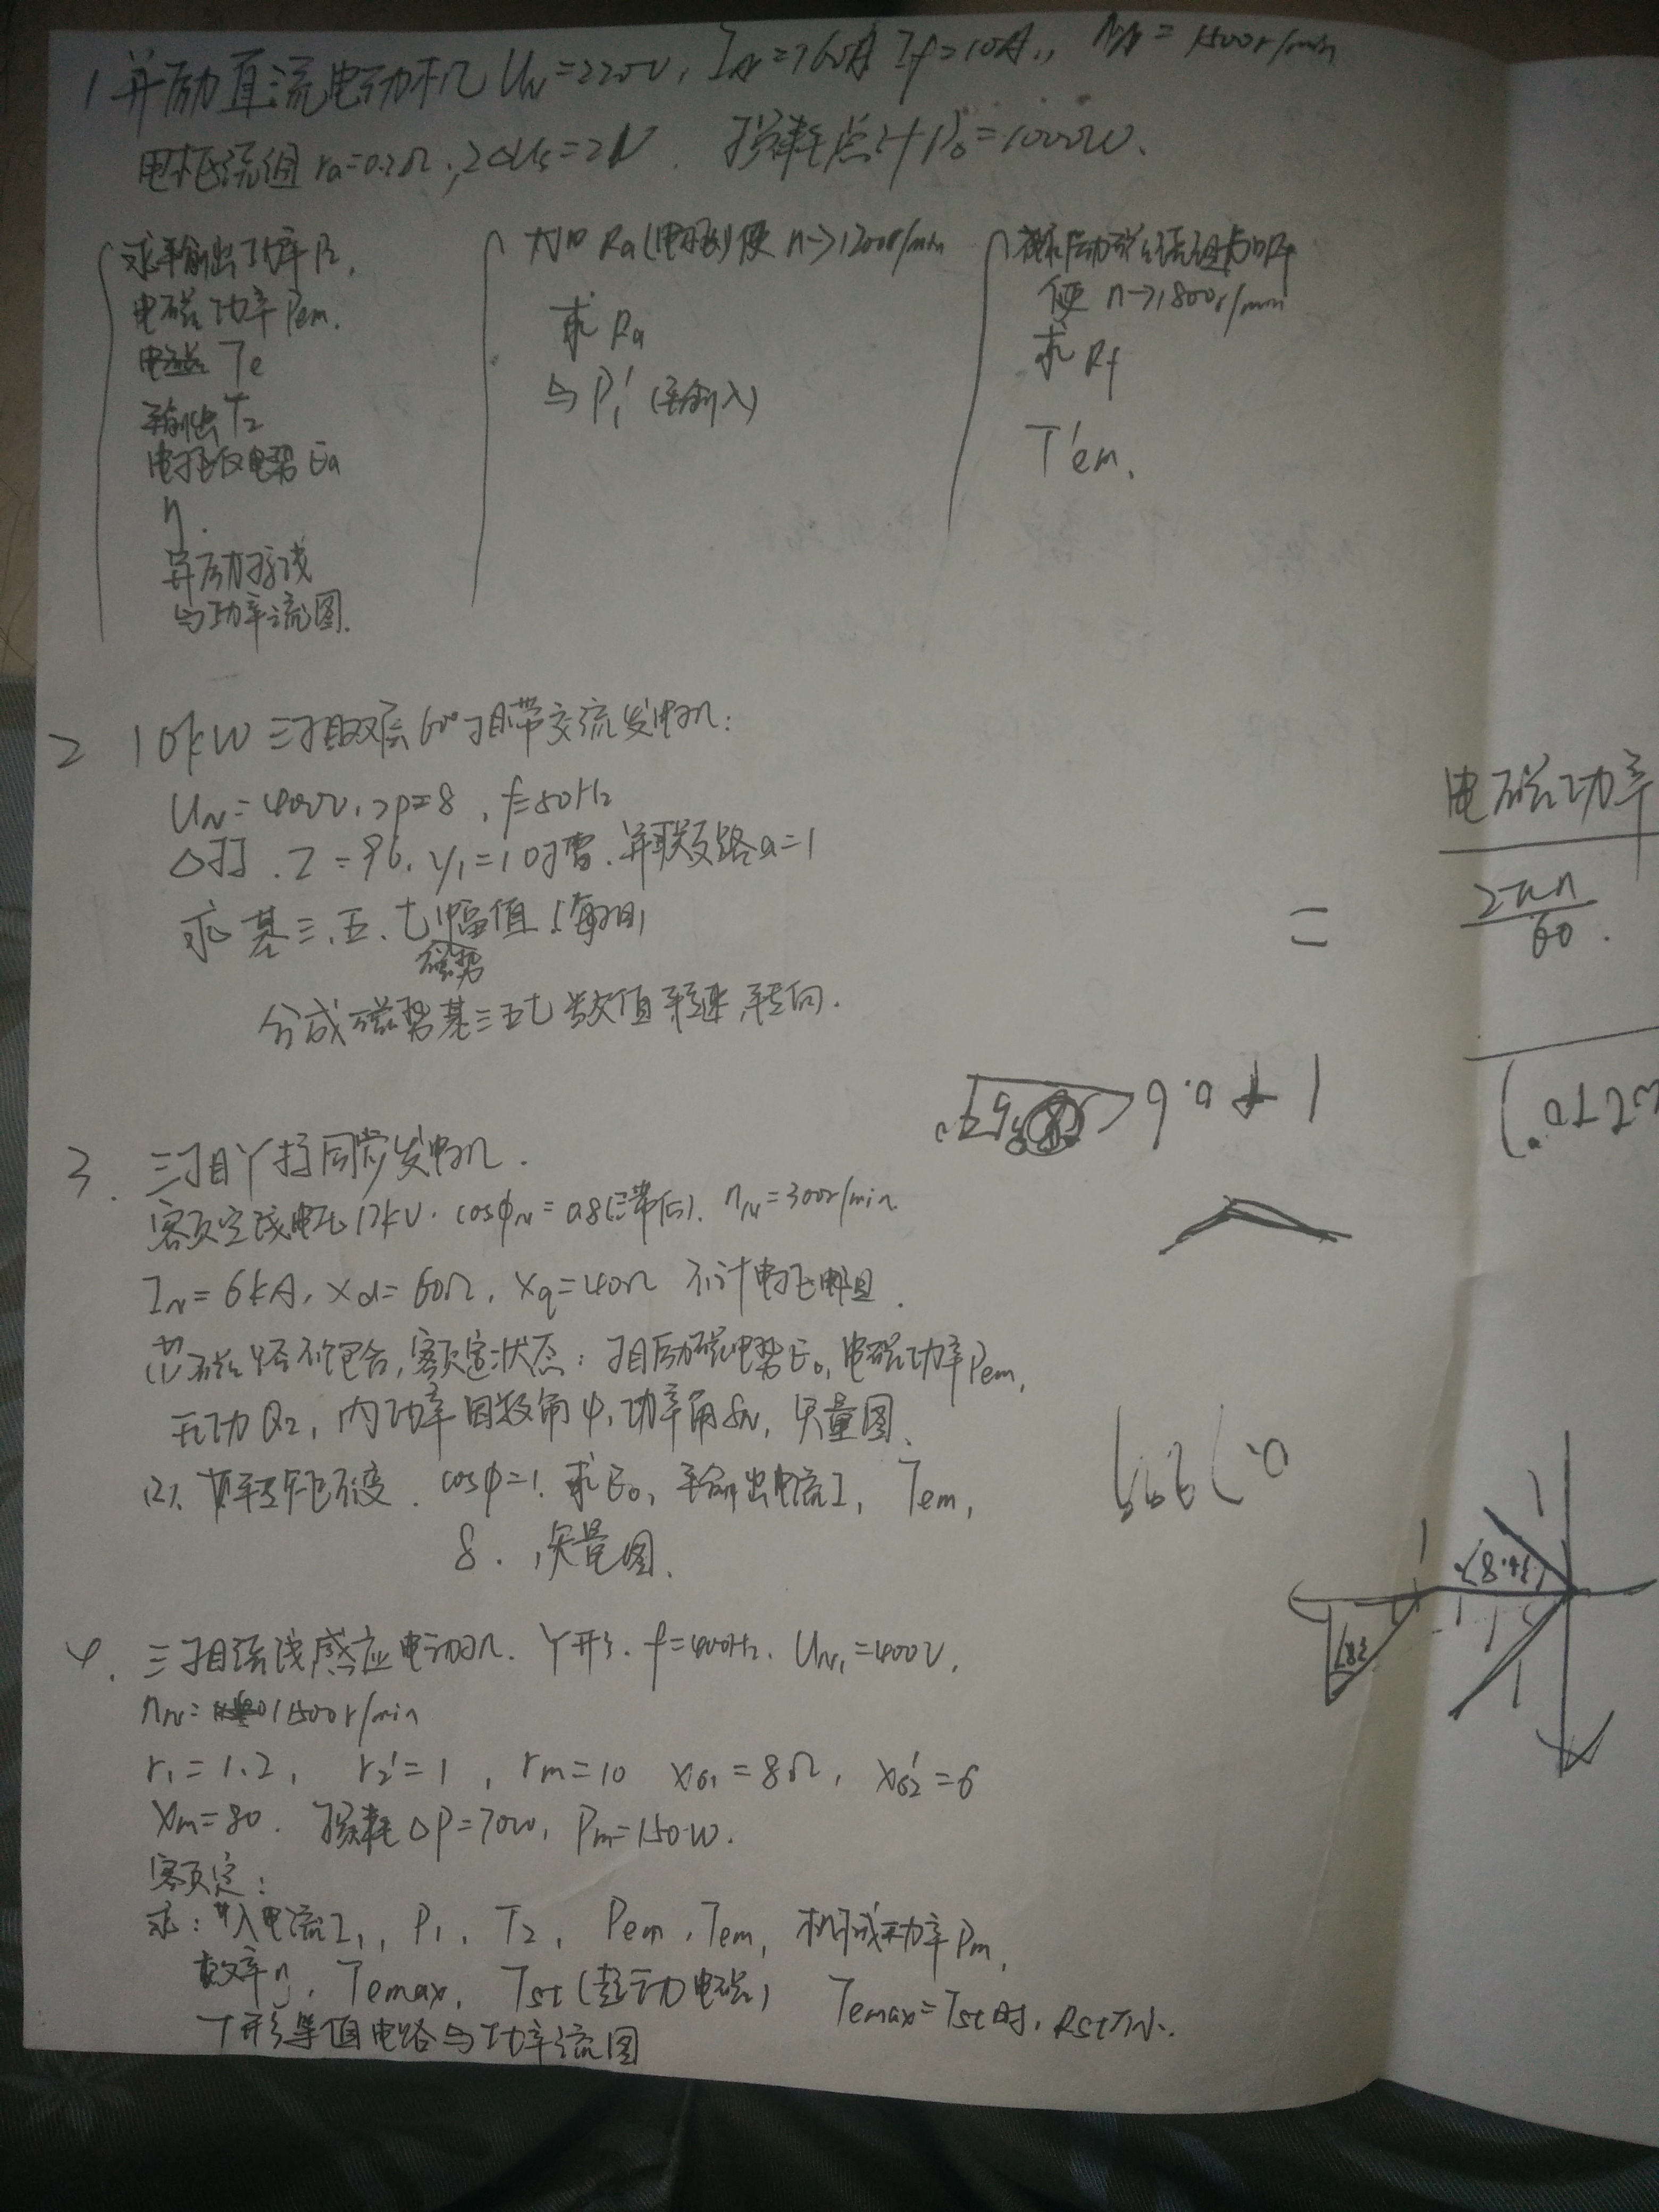 1 并励直流电动机 UN=220V, IN=760A If=10A, nN=1500r/min
电枢绕组 ra=0.2Ω, 2ΔUs=2V. 损耗总计P0=1000W.
求输出功率P2,
电磁功率Pem.
Te
输出T2
电枢反电势Ea
η.
并励接线
与功率流图.
Ra(电枢)使 n→1200r/min
求 Ra
与 P1' (输入)
励磁绕组
使 n→1800r/min
求 Rf
T'em.
2 10kW 三相双层60°相带交流发电机:
UN=400V, 2p=8, f=50Hz
Δ形. Z=96. y1=10槽. 并联支路a=1
求 基三、五、七幅值(每相)
磁势
合成磁势基三五七数值转速,转向.
3. 三相Y接同步发电机.
额定线电压17kV. cosφN=0.8(滞后). nN=300r/min.
IN=6kA, xd=60Ω, xq=40Ω 不计电枢电阻.
(1) 磁路不饱合,额定状态: 相励磁电势E0, 电磁功率Pem,
无功Q2, 内功率因数角ψ, 功率角δN, 矢量图、
(2). 转矩不变. cosφ=1. 求E0, 输出电流I, Tem,
δ. ,矢量图.
4. 三相绕线感应电动机. Y形. f=400Hz. UN1=400V.
nN= 1500r/min
r1=1.2, r2'=1, rm=10 xσ1=8Ω, xσ2'=6
xm=80. 损耗ΔP=70W, Pm=150W.
额定:
求: 入电流I1, P1, T2, Pem, Tem, 机械功率Pm,
效率η. Temax, Tst(起动电磁) Temax=Tst时, Rst大小.
T形等值电路与功率流图
电磁功率
= 2πn
60.